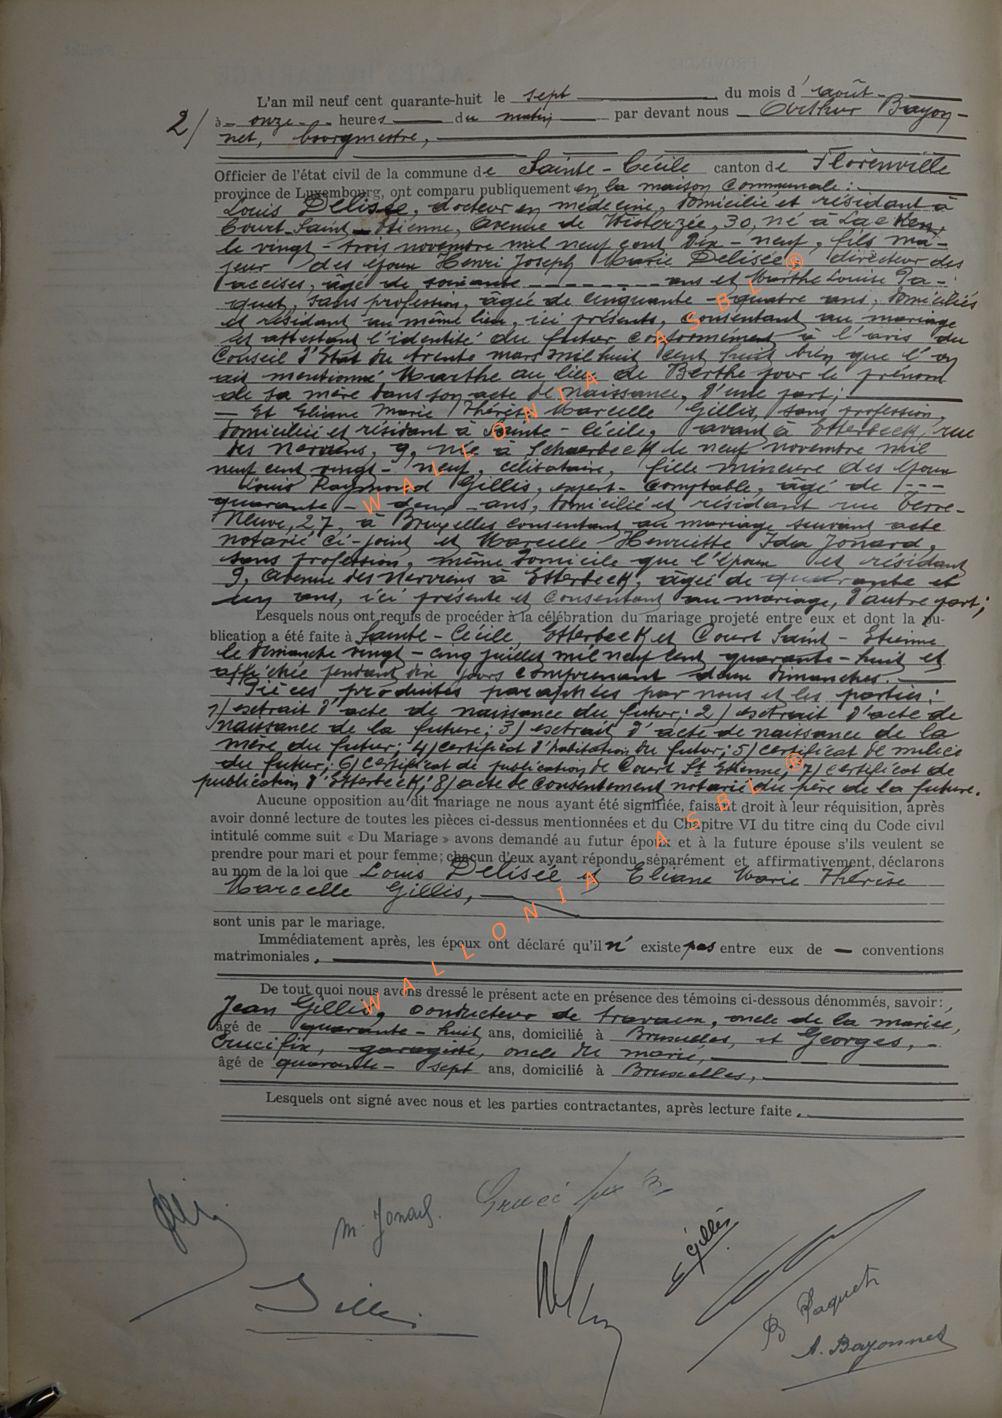 L'an mil neuf cent quarante-huit le sept du mois d'août
2/ à onze heures du matin par devant nous Arthur Bayon-
net, bourgmestre,
Officier de l'état civil de la commune de Sainte-Cécile canton de Florenville
province de Luxembourg, ont comparu publiquement en la maison communale :
Louis Delisée, docteur en médecine, domicilié et résidant à
Court-Saint-Etienne, Avenue de Wisterzée, 30, né à Laeken,
le vingt-trois novembre mil neuf cent dix-neuf, fils ma-
jeur des époux Henri Joseph Marie Delisée, directeur des
accises, âgé de soixante ans et Marthe Louise Pa-
quet, sans profession, âgée de cinquante-quatre ans, domiciliés
et résidant au même lieu, ici présents, consentant au mariage
et attestant l'identité du futur conformément à l'avis du
Conseil d'Etat du trente mars mil huit cent huit bien que l'on
ait mentionné Marthe au lieu de Berthe pour le prénom
de sa mère dans son acte de naissance, d'une part;
— Et Eliane Marie Thérèse Marcelle Gillis, sans profession,
domiciliée et résidant à Sainte-Cécile, avant à Etterbeek, rue
des Nerviens, 9, née à Schaerbeek le neuf novembre mil
neuf cent vingt-neuf, célibataire, fille mineure des époux
Louis Raymond Gillis, expert-comptable, âgé de ---
quarante-deux ans, domicilié et résidant rue Terre-
Neuve, 27, à Bruxelles consentant au mariage suivant acte
notarié ci-joint et Marcelle Henriette Ida Jonard,
sans profession, même domicile que l'époux et résidant
9, Avenue des Nerviens à Etterbeek, âgée de quarante et
un ans, ici présente et consentant au mariage, d'autre part;
Lesquels nous ont requis de procéder à la célébration du mariage projeté entre eux et dont la pu-
blication a été faite à Sainte-Cécile, Etterbeek et Court Saint-Etienne
le dimanche vingt-cinq juillet mil neuf cent quarante-huit et
affichée pendant dix jours comprenant deux dimanches.
Pièces produites paraphées par nous et les parties :
1/ extrait d'acte de naissance du futur; 2/ extrait d'acte de
naissance de la future; 3/ extrait d'acte de naissance de la
mère du futur; 4/ certificat d'habitation du futur; 5/ certificat de milice
du futur; 6/ certificat de publication de Court St Etienne; 7/ certificat de
publication d'Etterbeek; 8/ acte de consentement notarié du père de la future.
Aucune opposition au dit mariage ne nous ayant été signifiée, faisant droit à leur réquisition, après
avoir donné lecture de toutes les pièces ci-dessus mentionnées et du Chapitre VI du titre cinq du Code civil
intitulé comme suit « Du Mariage » avons demandé au futur époux et à la future épouse s'ils veulent se
prendre pour mari et pour femme; chacun d'eux ayant répondu séparément et affirmativement, déclarons
au nom de la loi que Louis Delisée et Eliane Marie Thérèse
Marcelle Gillis,
sont unis par le mariage.
Immédiatement après, les époux ont déclaré qu'il n'existe pas entre eux de — conventions
matrimoniales.
De tout quoi nous avons dressé le présent acte en présence des témoins ci-dessous dénommés, savoir :
Jean Gillis, conducteur de travaux, oncle de la mariée,
âgé de quarante-huit ans, domicilié à Bruxelles, et Georges,
Crucifix, garagiste, oncle du marié,
âgé de quarante-sept ans, domicilié à Bruxelles,
Lesquels ont signé avec nous et les parties contractantes, après lecture faite.
M. Jonard. Crucifix G
E Gillis
Gillis
B Paquet
A. Bayonnet
WALLONIA ASBL ®
WALLONIA ASBL ®